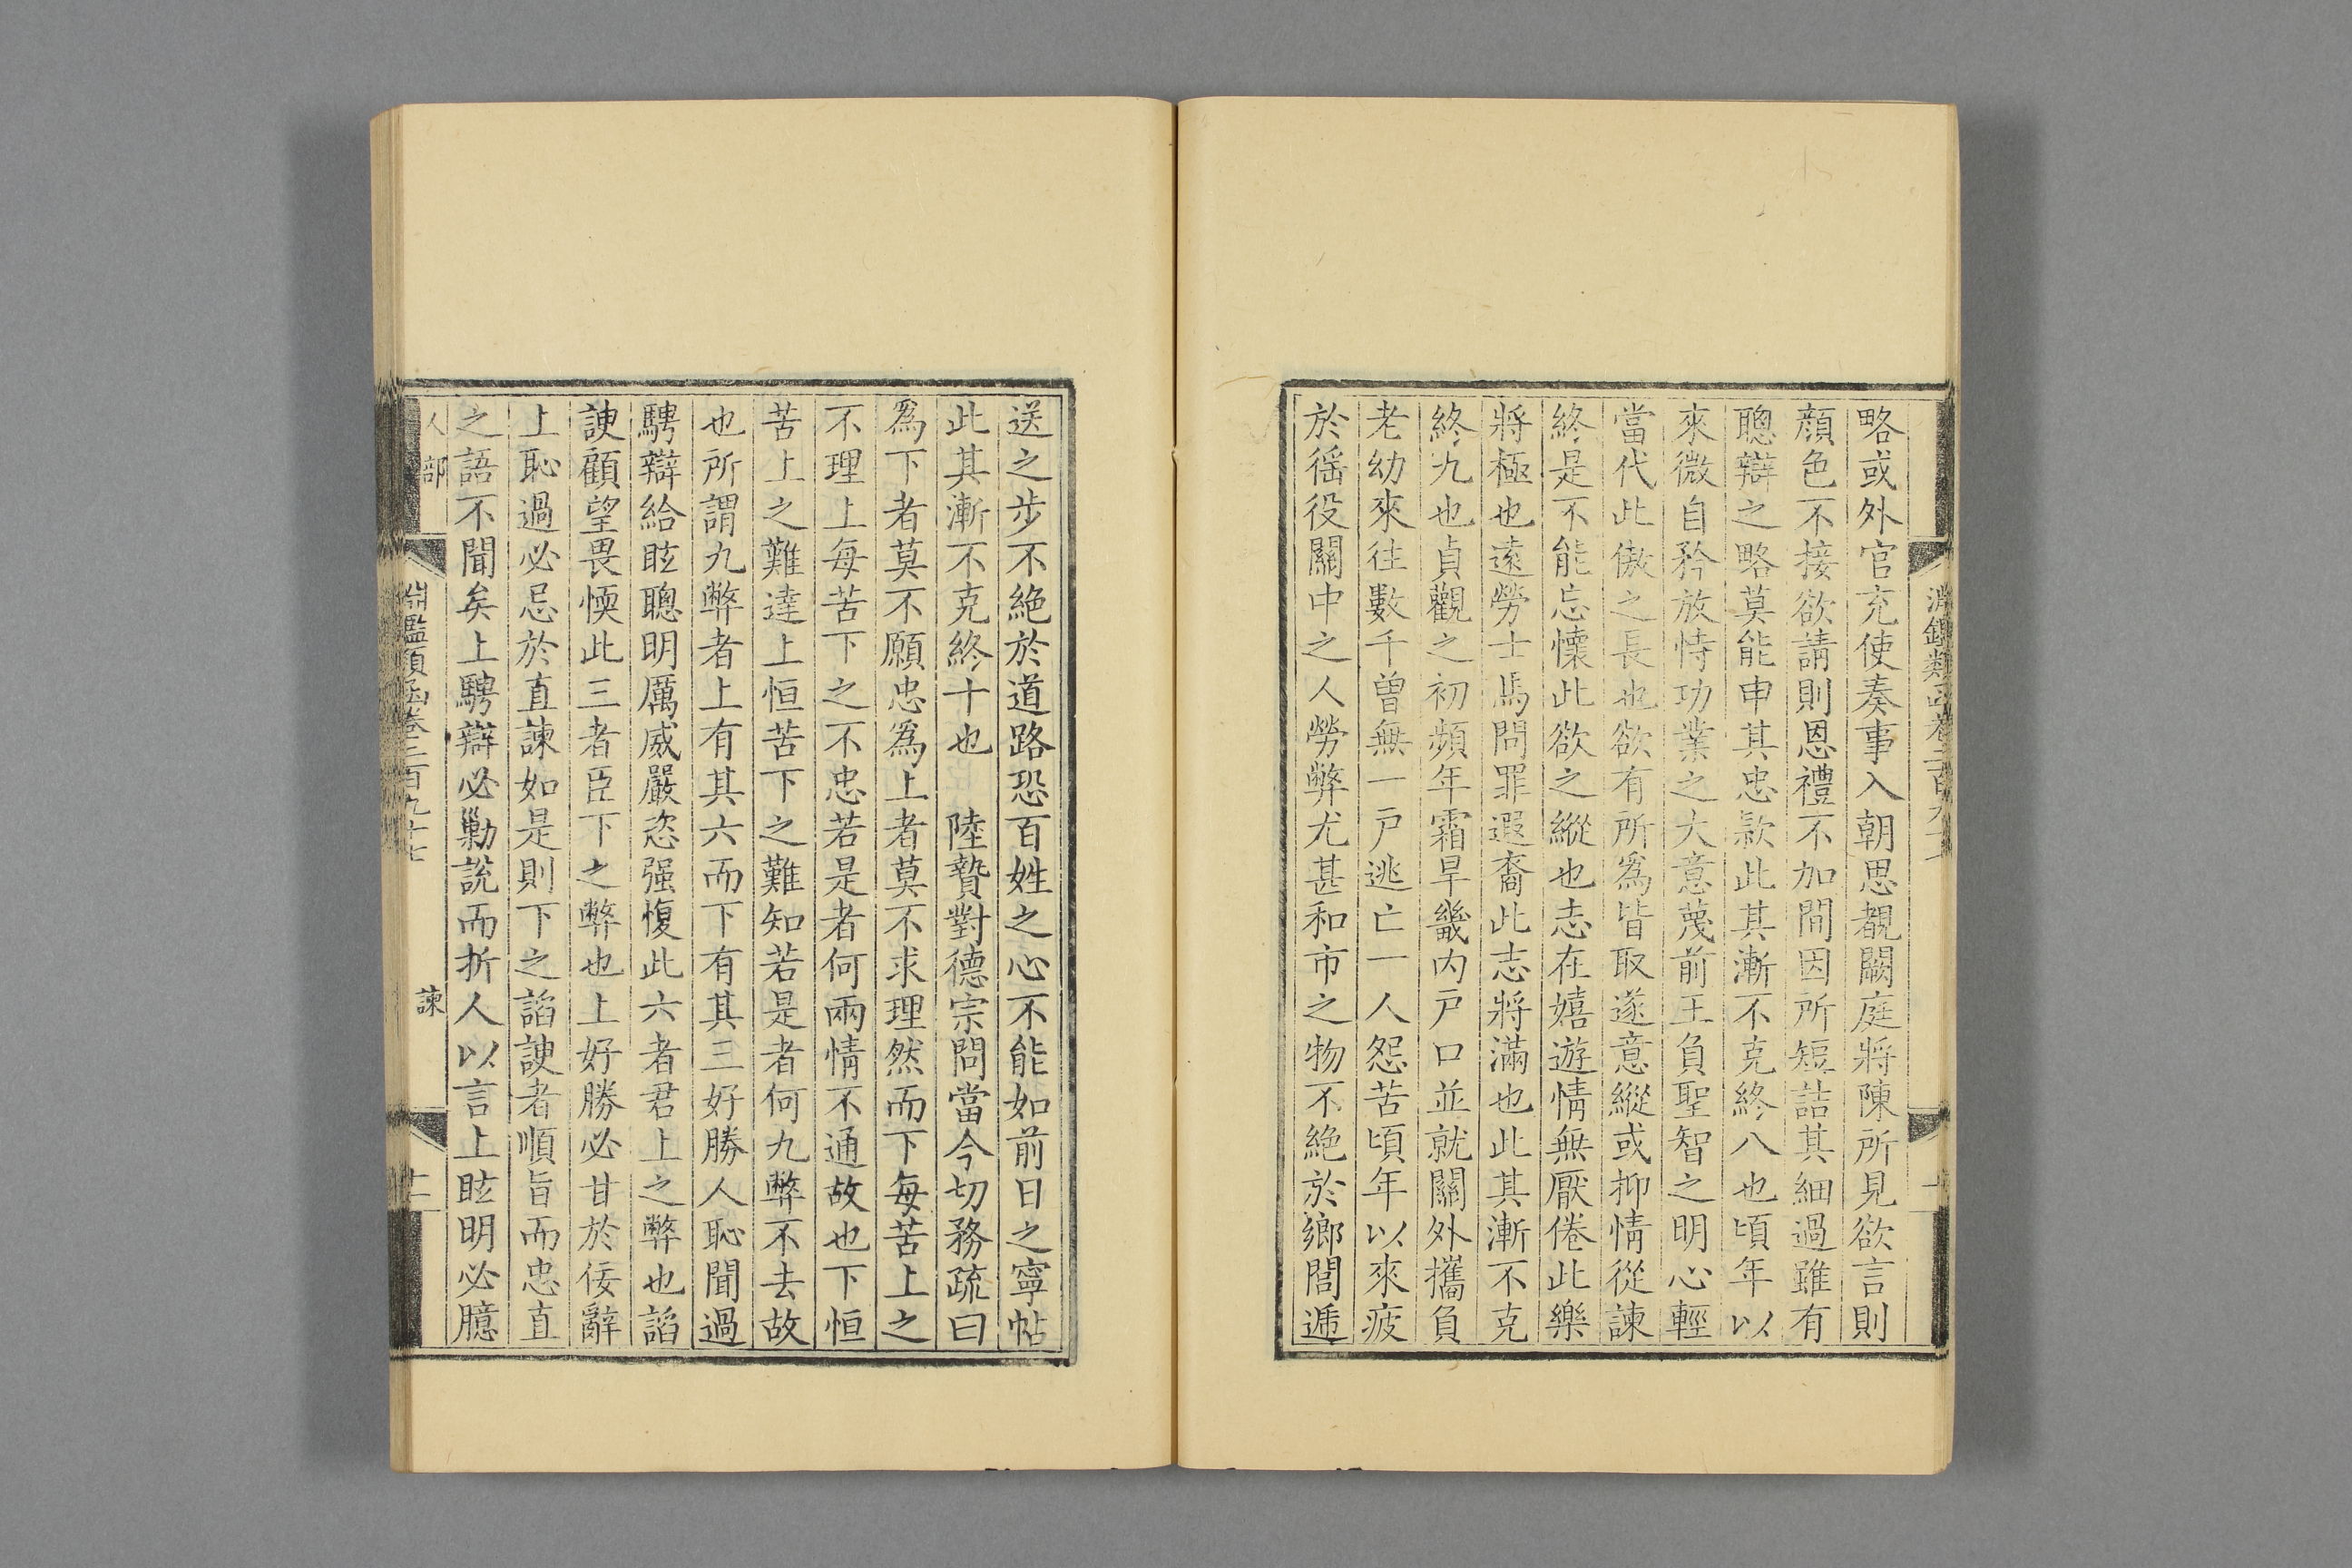 略或外官充使奏事入朝思覩闕庭將陳所見欲言則
顔色不接欲請則恩禮不加間因所短詰其細過雖有
聰辯之略莫能申其忠款此其漸不克終八也頃年以
來微自矜放恃功業之大意蔑前王負聖智之明心輕
當代此傲之長也欲有所爲皆取遂意縱或抑情從諫
終是不能忘懷此欲之縱也志在嬉遊情無厭倦此樂
將極也遠勞士馬問罪遐裔此志將滿也此其漸不克
終九也貞觀之初頻年霜旱畿内戸口並就關外攜負
老幼來往數千曾無一戸逃亡一人怨苦頃年以來疲
於徭役關中之人勞弊尤甚和市之物不絶於鄉閭遞
送之步不絶於道路恐百姓之心不能如前日之寧帖
此其漸不克終十也　陸贄對德宗問當今切務疏曰
爲下者莫不願忠爲上者莫不求理然而下每苦上之
不理上每苦下之不忠若是者何兩情不通故也下恒
苦上之難達上恒苦下之難知若是者何九弊不去故
也所謂九弊者上有其六而下有其三好勝人恥聞過
騁辯給眩聰明厲威嚴恣强愎此六者君上之弊也諂
諛顧望畏愞此三者臣下之弊也上好勝必甘於佞辭
上恥過必忌於直諫如是則下之諂諛者順旨而忠直
之語不聞矣上騁辯必勦說而折人以言上眩明必臆
人部
淵鑑類函卷二百九十七
諫
十二